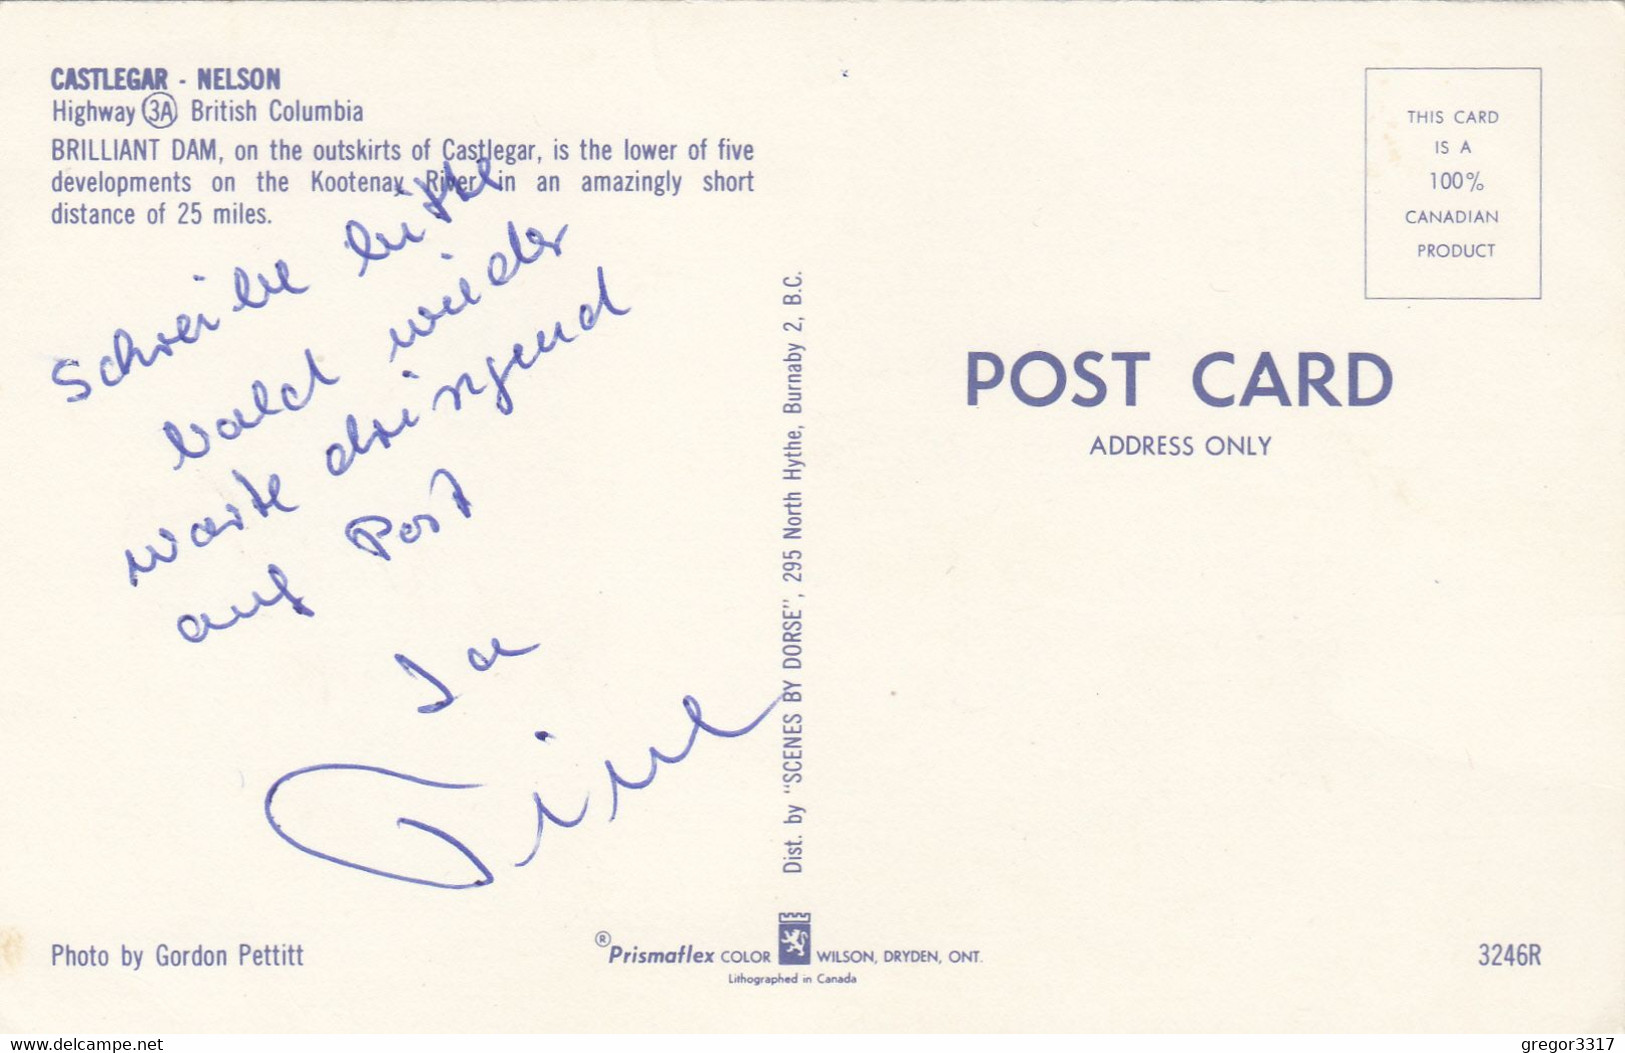 CASTLEGAR - NELSON
Highway 3A British Columbia
BRILLIANT DAM, on the outskirts of Castlegar, is the lower of five
developments on the Kootenay River in an amazingly short
distance of 25 miles.
Schreibe bitte
bald wieder
warte dringend
auf Post
Tine
Photo by Gordon Pettitt
Dist. by "SCENES BY DORSE", 295 North Hythe, Burnaby 2, B.C.
® Prismaflex COLOR WILSON, DRYDEN, ONT.
Lithographed in Canada
THIS CARD
IS A
100%
CANADIAN
PRODUCT
POST CARD
ADDRESS ONLY
3246R
www.delcampe.net
gregor3317